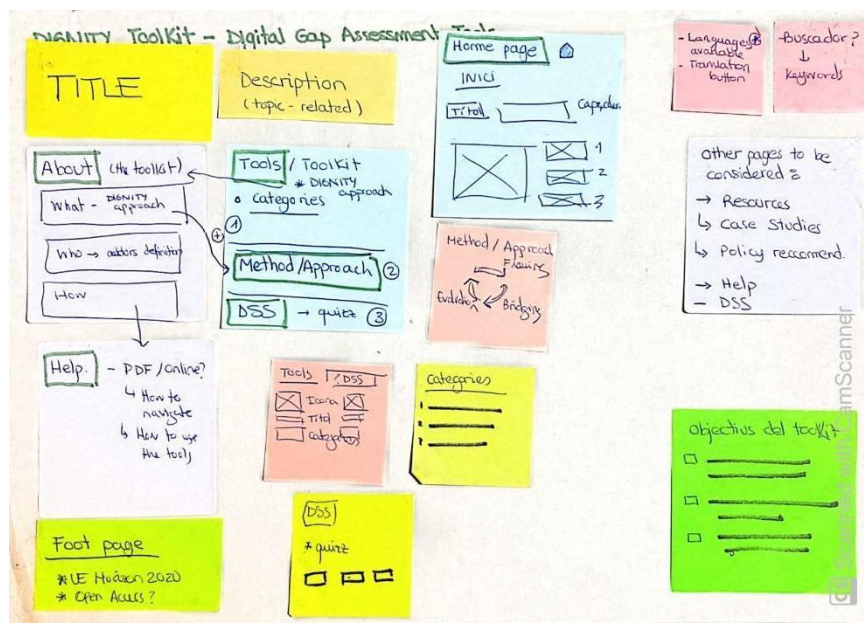 DIGNITY Toolkit - Digital Gap Assessment Tools
TITLE
Description
(topic-related)
Home page
INICI
Títol
1
2
3
- Languages *
available
- Translation
button
- Buscador?
↓
Keywords
About (the toolkit)
What - DIGNITY
approach
Who →
definition
How
Tools / Toolkit
* DIGNITY
approach
• categories
+
1
Method/Approach 2
DSS → quizz 3
Method / Approach
Framing
Bridging
Evaluation
other pages to be
considered:
→ Resources
↳ Case Studies
↳ Policy reccomend.
→ Help
- DSS
Help. - PDF/Online?
↳ How to
navigate
↳ How to use
the tools
Tools
DSS
Icona
Títol
Categories
Categories
1
2
objectius del toolkit
Foot page
* UE Horizon 2020
* Open Access?
DSS
* quizz
CS Scanned with CamScanner